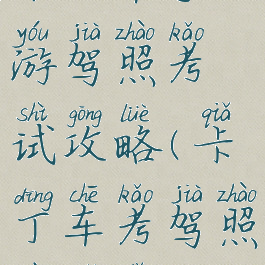 yóu jià zhào kǎo
游驾照考
shì gōng lüè qiǎ
试攻略(卡
dīng chē kǎo jià zhào
丁车考驾照